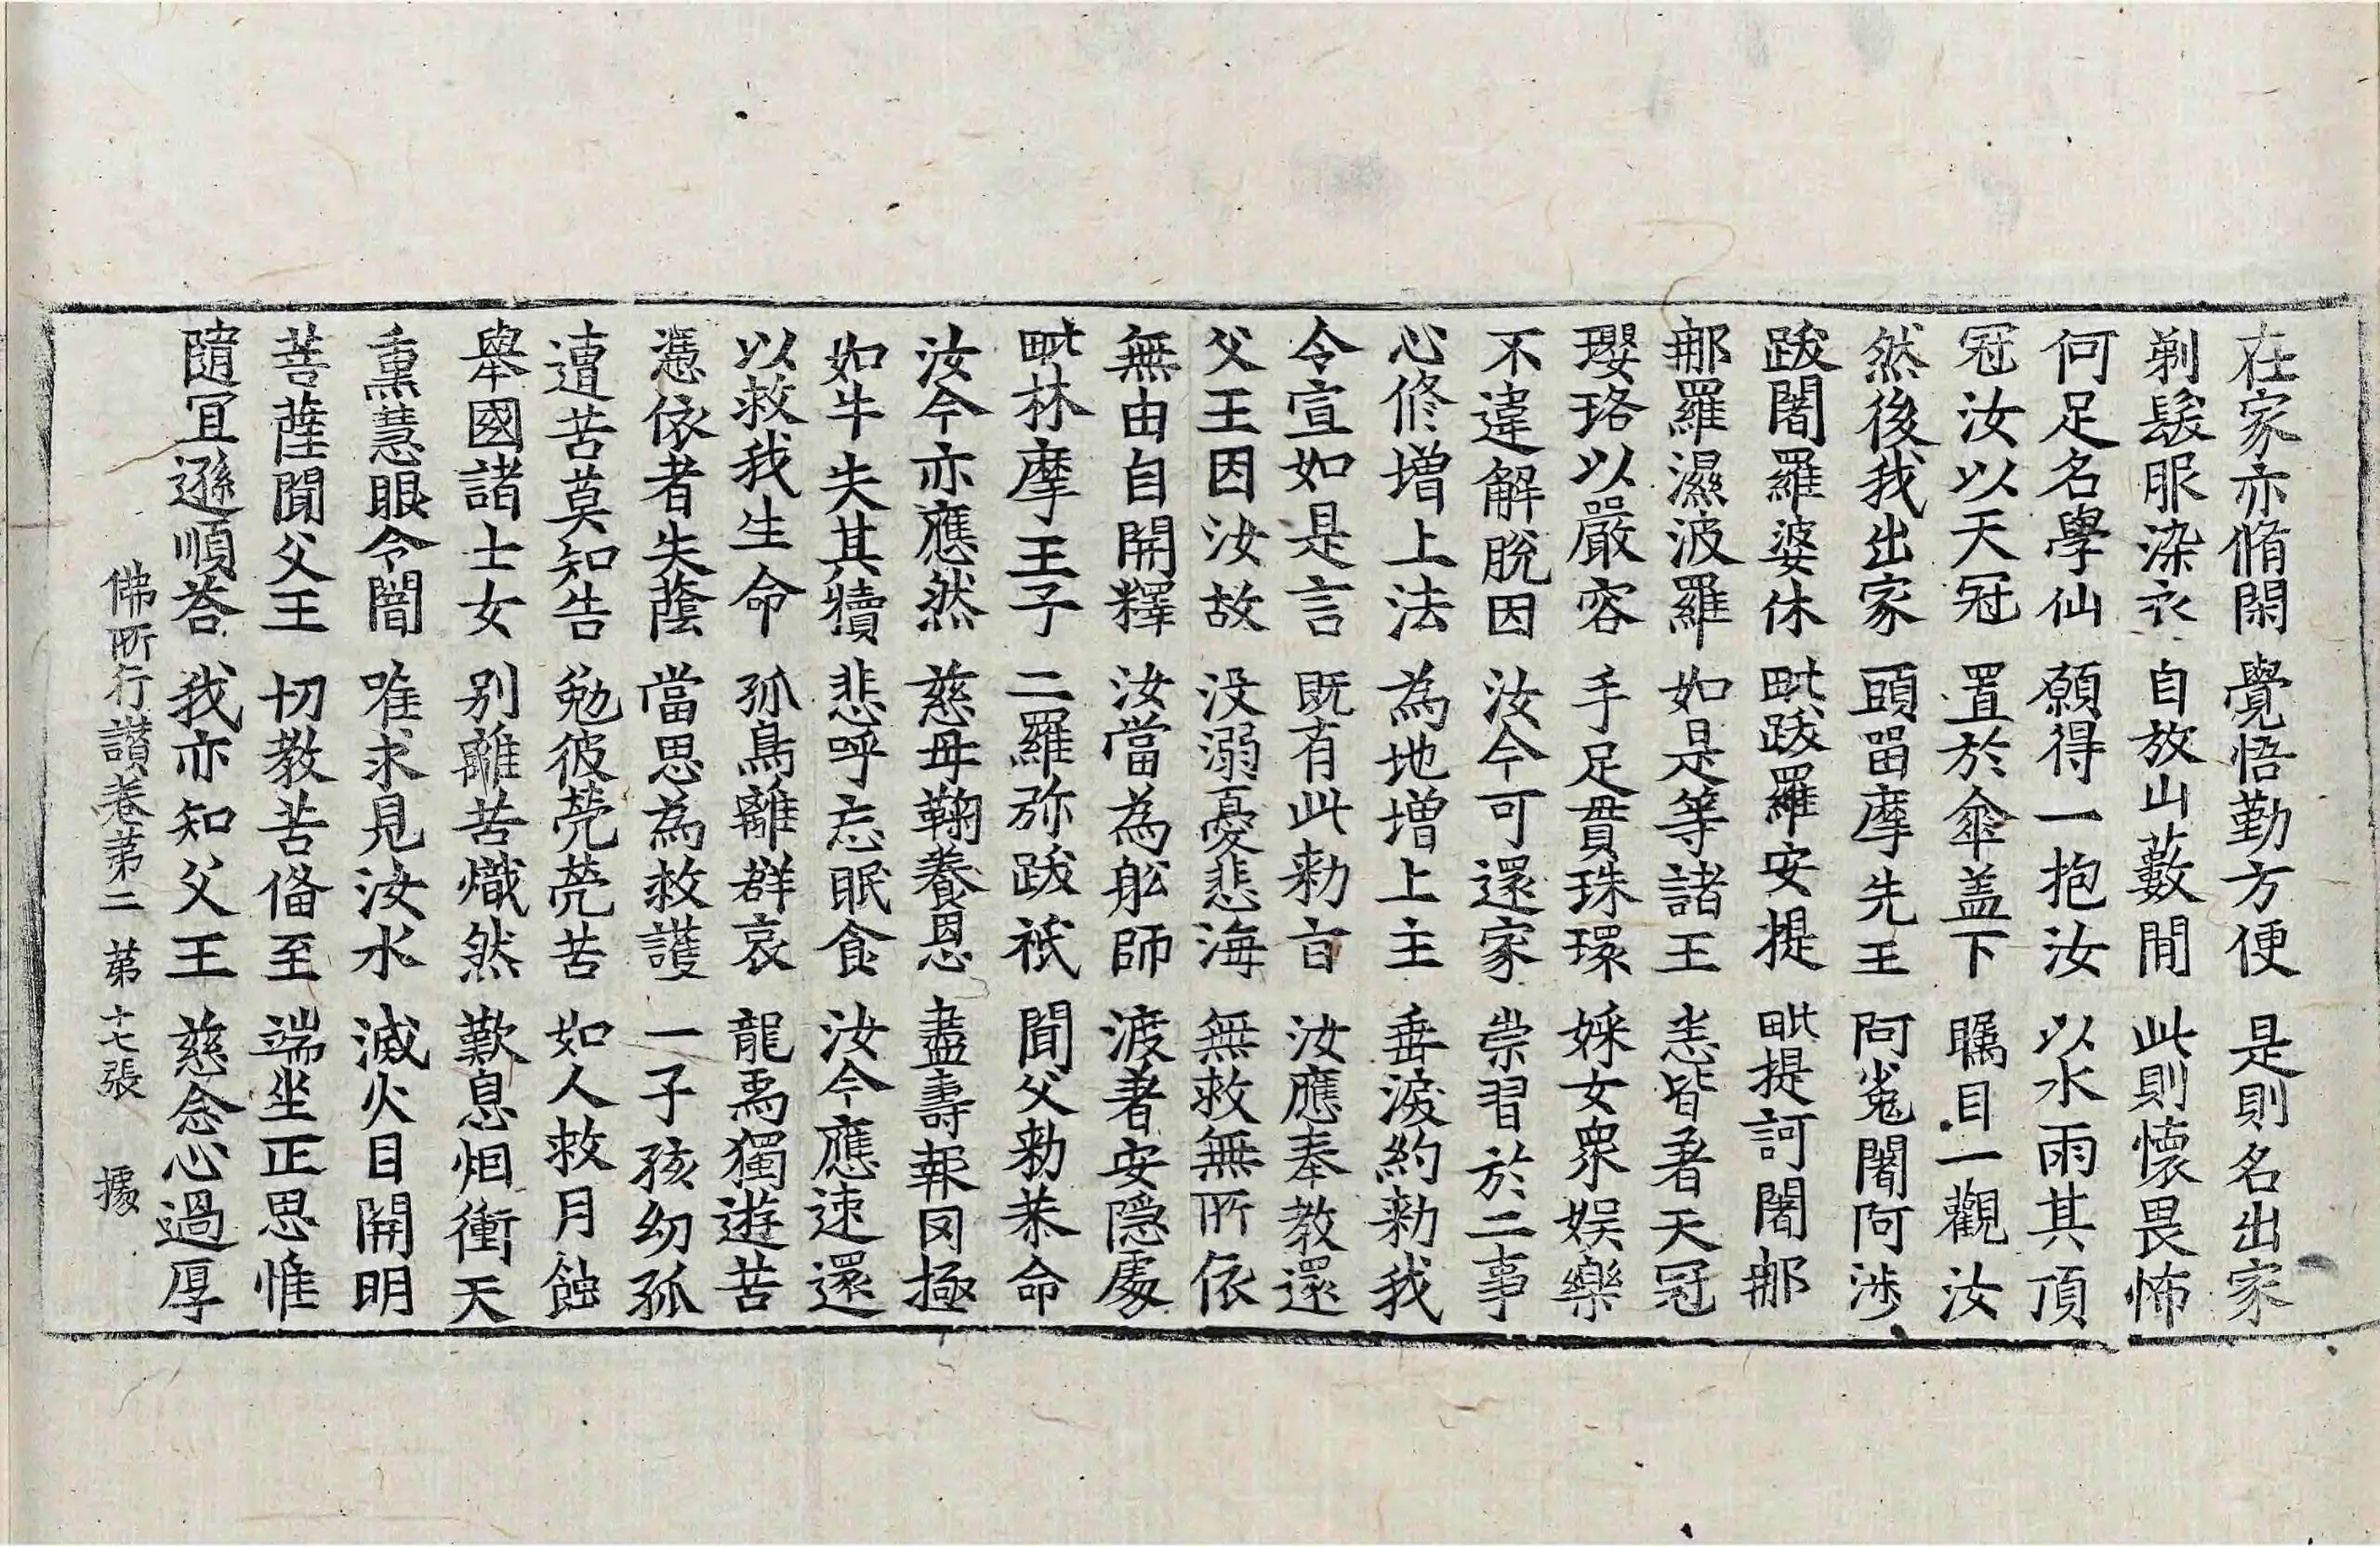 在家亦脩閑 覺悟勤方便 是則名出家
剃髮服染衣 自放山藪閒 此則懷畏怖
何足名學仙 願得一抱汝 以水雨其頂
冠汝以天冠 置於傘盖下 矚目一觀汝
然後我出家 頭留摩先王 阿㝹闍阿涉
跋闍羅婆休 毗跋羅安提 毗提訶闍那
那羅濕波羅 如是等諸王 悉皆著天冠
瓔珞以嚴容 手足貫珠環 婇女衆娛樂
不違解脫因 汝今可還家 崇習於二事
心修增上法 為地增上主 垂淚約勑我
令宣如是言 既有此勑旨 汝應奉教還
父王因汝故 没溺憂悲海 無救無所依
無由自開釋 汝當為舩師 渡著安隱處
毗林摩王子 二羅弥跋祇 聞父勑恭命
汝今亦應然 慈母鞠養恩 盡壽報罔極
如牛失其犢 悲呼忘眠食 汝今應速還
以救我生命 孤鳥離群哀 龍象獨遊苦
憑依者失蔭 當思為救護 一子孩幼孤
遭苦莫知告 勉彼煢煢苦 如人救月蝕
舉國諸士女 别離苦熾然 歎息烟衝天
熏慧眼令闇 唯求見汝水 滅火目開明
菩薩聞父王 切教苦備至 端坐正思惟
隨宜遜順荅 我亦知父王 慈念心過厚
佛所行讃卷第二 第十七張 據